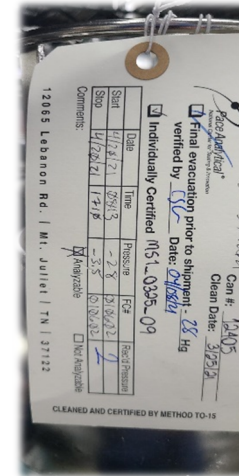 Pace Analytical®
Can #: 12405
Clean Date: 3/25/21
Final evacuation prior to shipment - 28 Hg
verified by Date: 04/08/21
Individually Certified MS1_0325_09
Date Time Pressure FC# Rec'd Pressure
Start 4/20/21 0943
Stop 4/20/21 1718 -3.5
Comments: Analyzable Not Analyzable
12065 Lebanon Rd. | Mt. Juliet | TN | 37122
CLEANED AND CERTIFIED BY METHOD TO-15